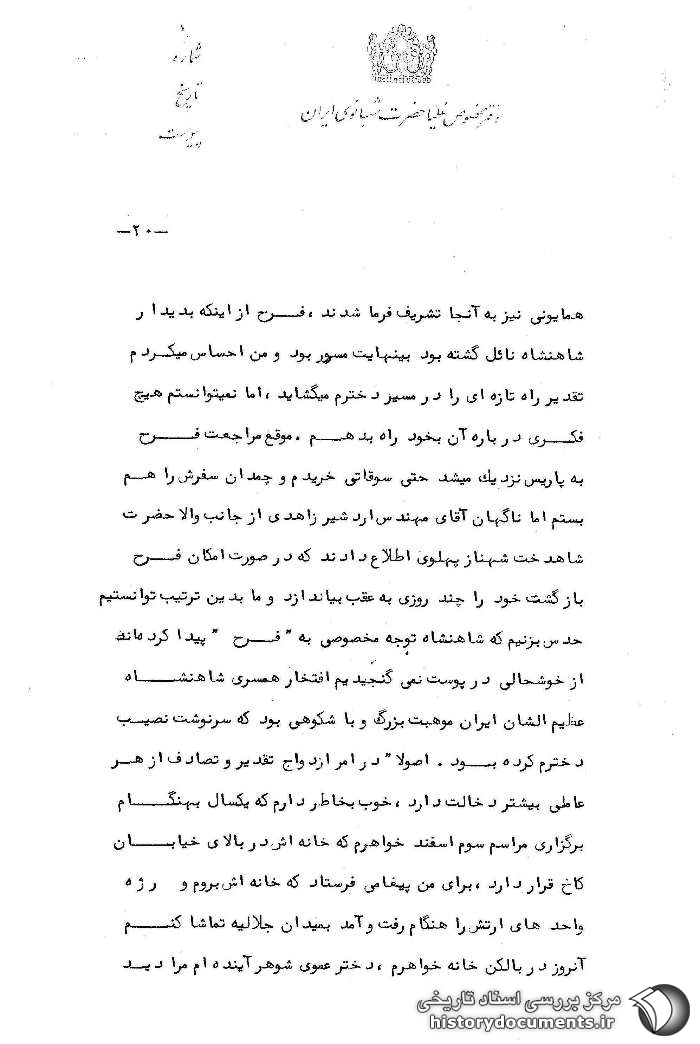 شماره
تاریخ
پیوست
دفتر مخصوص علیا حضرت شهبانوی ایران
-۲۰-
همایونی نیز به آنجا تشریف فرما شدند ، فـــرح از اینکه بدیدار
شاهنشاه نائل گشته بود بینهایت مسور بود و من احساس میکردم
تقدیر راه تازه ای را در مسیر دخترم میگشاید ، اما نمیتوانستم هیچ
فکـری در باره آن بخود راه بدهــم . موقع مراجعت فـــرح
به پاریس نزدیك میشد حتی سوقاتی خریدم و چمدان سفرش را هــم
بستم اما ناگهان آقای مهندس اردشیر زاهدی از جانب والاحضرت
شاهدخت شهناز پهلوی اطلاع دادند که در صورت امکان فـــرح
بازگشت خود را چند روزی به عقب بیاندازد و ما بدین ترتیب توانستیم
حدس بزنیم که شاهنشاه توجه مخصوصی به " فـــرح " پیدا کرده‌اند
از خوشحالی در پوست نمی گنجیدیم افتخار همسری شاهنشـــاه
عظیم الشان ایران موهبت بزرگ و با شکوهی بود که سرنوشت نصیـب
دخترم کرده بـــود . اصولا" در امر ازدواج تقدیر و تصادف از هــر
عاملی بیشتر دخالت دارد ، خوب بخاطر دارم که یکسال بهنگـــام
برگزاری مراسم سوم اسفند خواهرم که خانه اش در بالای خیابـــان
کاخ قرار دارد ، برای من پیغامی فرستاد که خانه اش بروم و رژه
واحد های ارتش را هنگام رفت و آمد بمیدان جلالیه تماشا کنـــم
آنروز در بالکن خانه خواهرم ، دختر عموی شوهر آینده ام مرا دیــد
مرکز بررسی اسناد تاریخی
historydocuments.ir